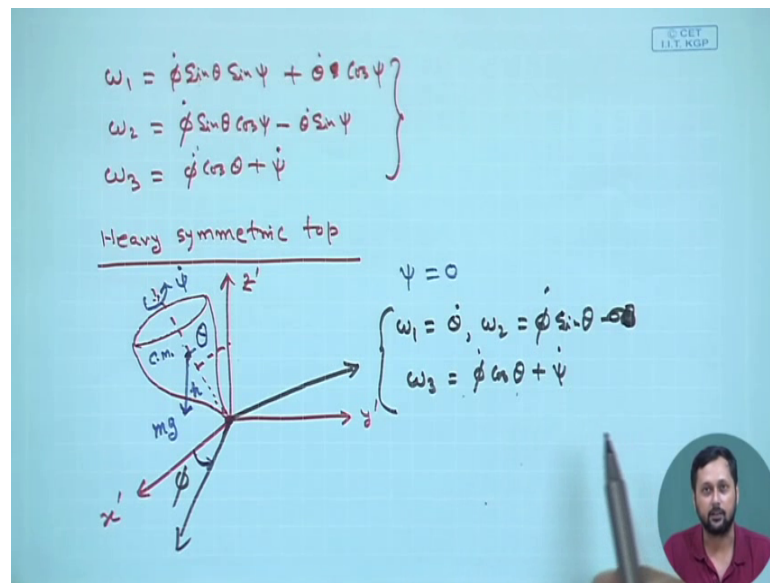 © CET
I.I.T. KGP
ω₁ = φ̇ Sinθ Sinψ + θ̇ Cosψ
ω₂ = φ̇ Sinθ Cosψ − θ̇ Sinψ
ω₃ = φ̇ Cosθ + ψ̇
Heavy symmetric top
ψ̇
z'
ψ = 0
θ
ω₁ = θ̇, ω₂ = φ̇ Sinθ
c.m.
ω₃ = φ̇ Cosθ + ψ̇
h
mg
y'
φ
x'